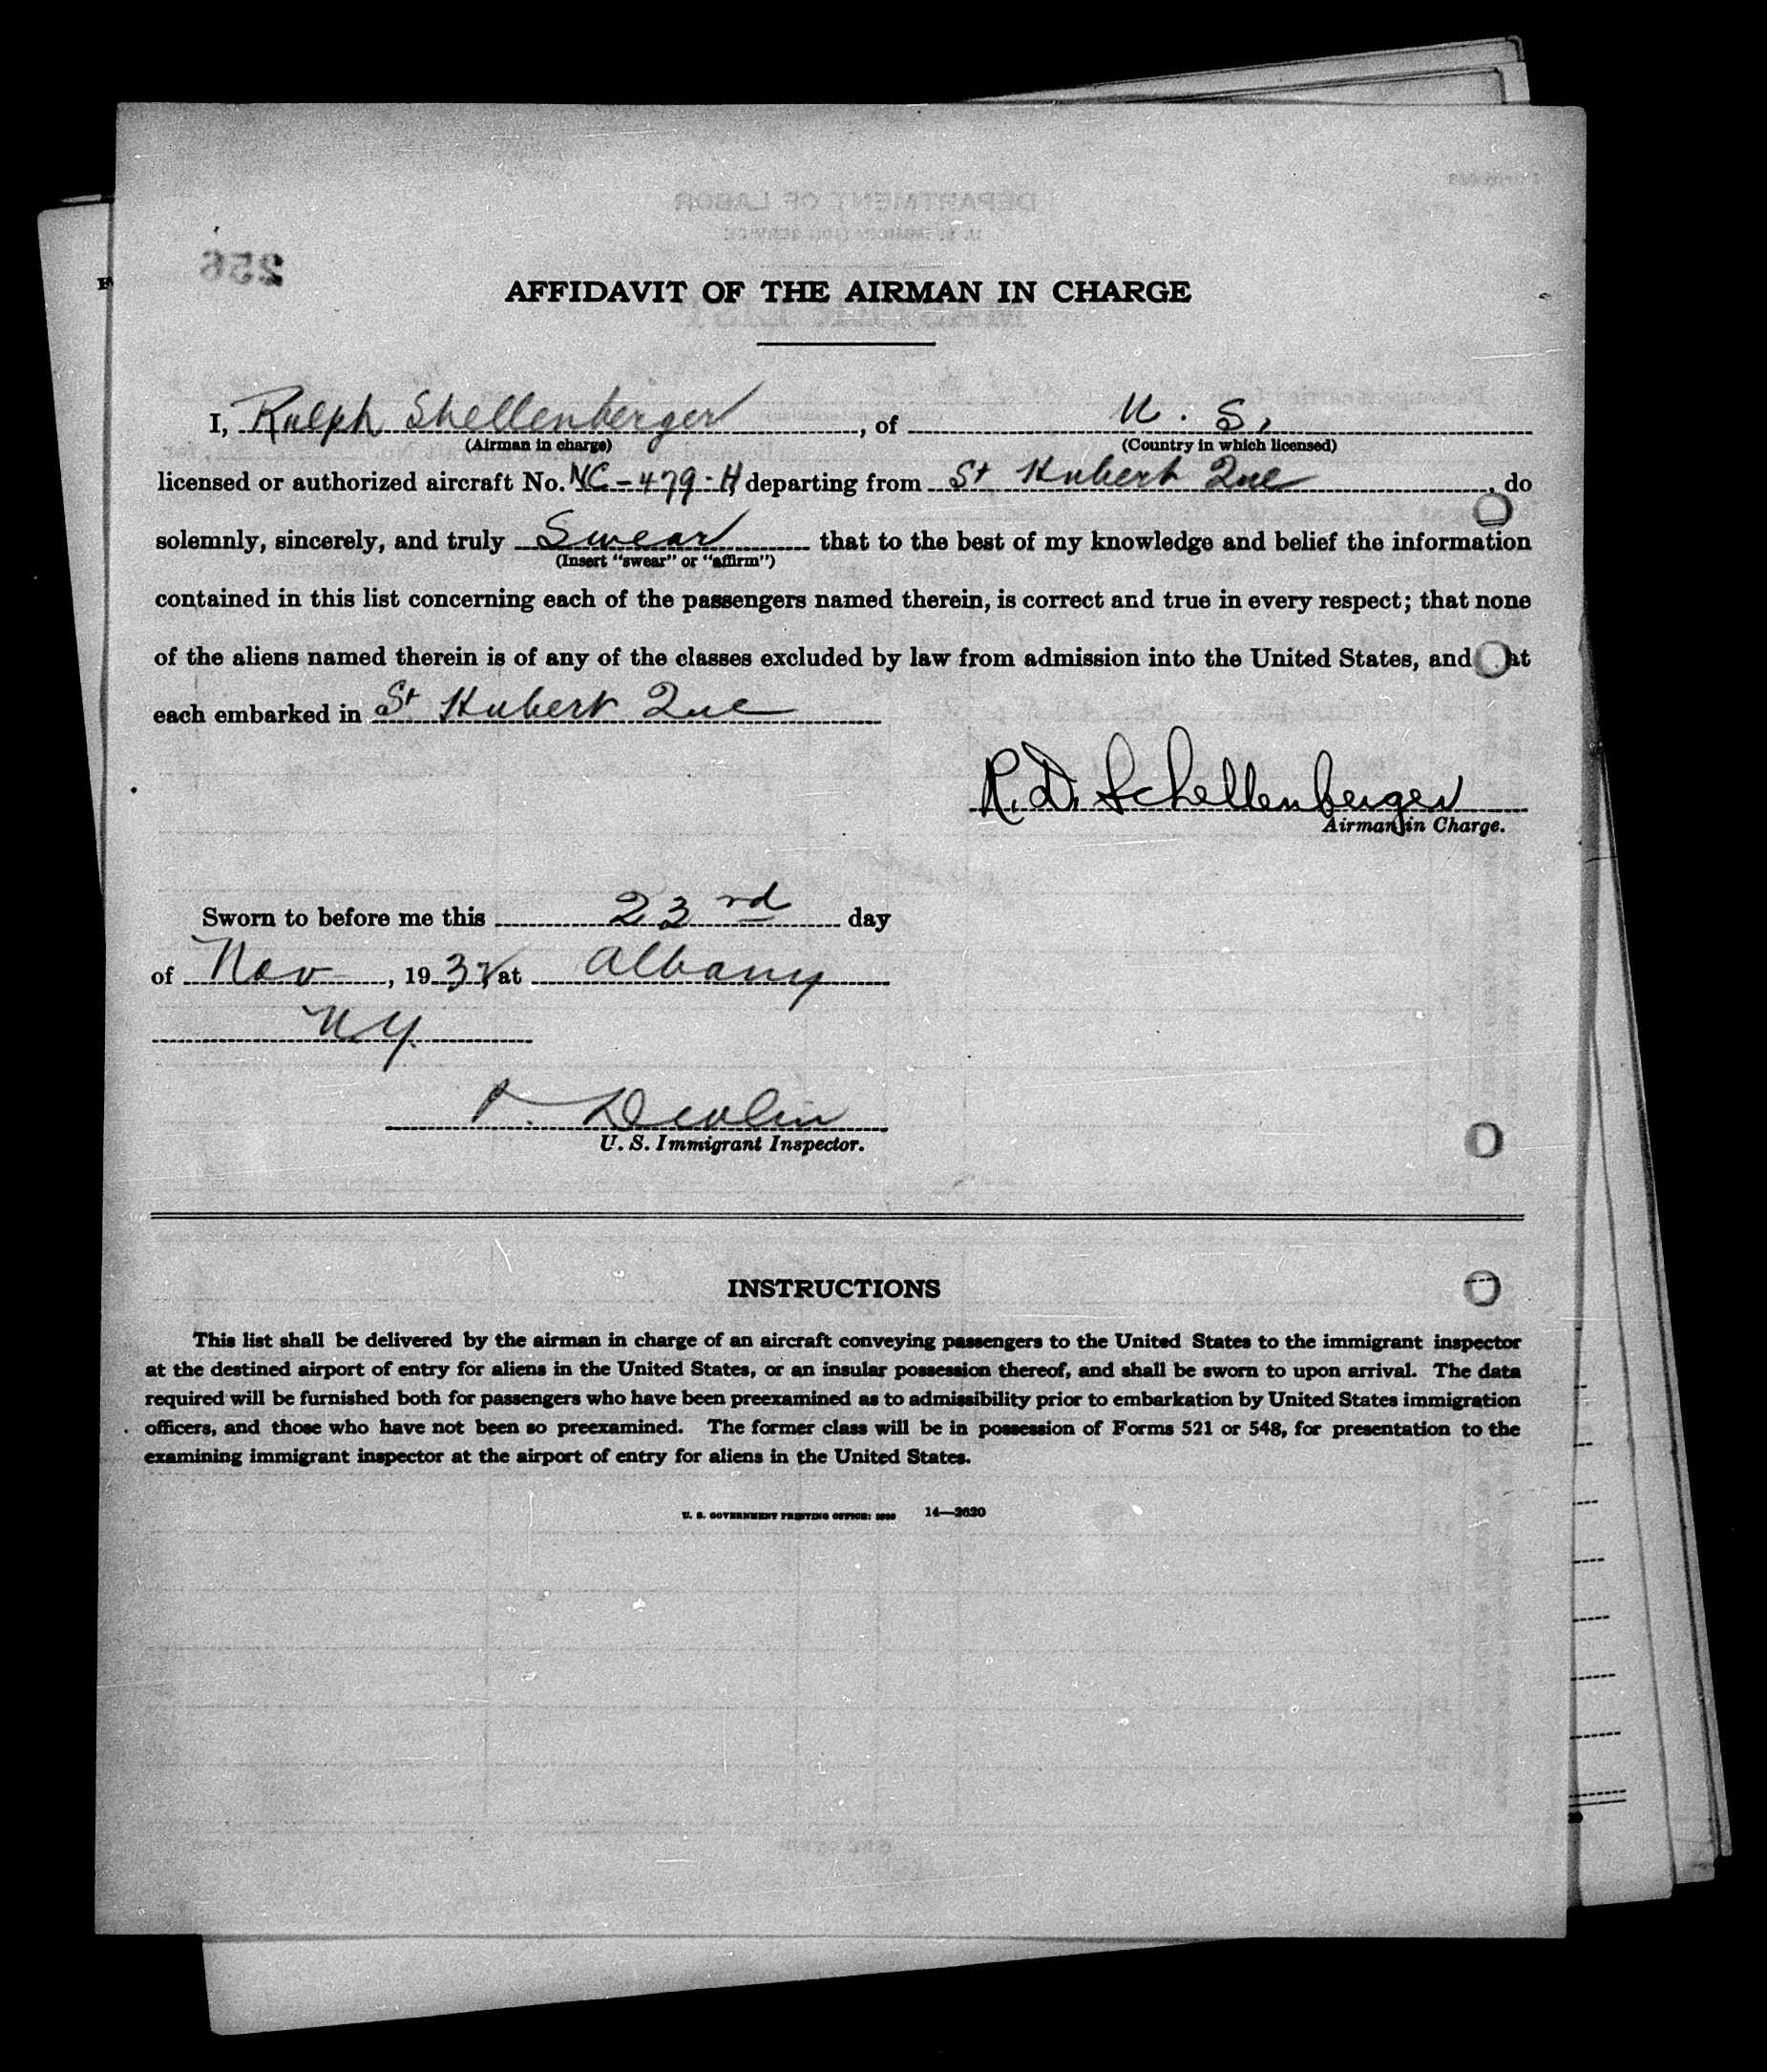 AFFIDAVIT OF THE AIRMAN IN CHARGE
I, Ralph Shellenberger, of U. S.
(Airman in charge) (Country in which licensed)
licensed or authorized aircraft No. NC-479-H, departing from St Hubert Que, do
solemnly, sincerely, and truly Swear that to the best of my knowledge and belief the information
(Insert "swear" or "affirm")
contained in this list concerning each of the passengers named therein, is correct and true in every respect; that none
of the aliens named therein is of any of the classes excluded by law from admission into the United States, and at
each embarked in St Hubert Que
R. D. Schellenberger
Airman in Charge.
Sworn to before me this 23rd day
of Nov, 193 at Albany
NY.
Devlin
U. S. Immigrant Inspector.
INSTRUCTIONS
This list shall be delivered by the airman in charge of an aircraft conveying passengers to the United States to the immigrant inspector
at the destined airport of entry for aliens in the United States, or an insular possession thereof, and shall be sworn to upon arrival. The data
required will be furnished both for passengers who have been preexamined as to admissibility prior to embarkation by United States immigration
officers, and those who have not been so preexamined. The former class will be in possession of Forms 521 or 548, for presentation to the
examining immigrant inspector at the airport of entry for aliens in the United States.
U. S. GOVERNMENT PRINTING OFFICE: 14—2620